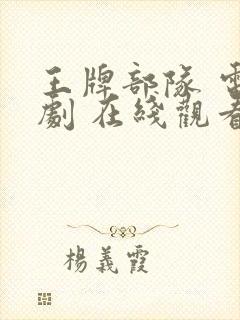 王牌部隊 電
劇 在綫觀看
楊義霞